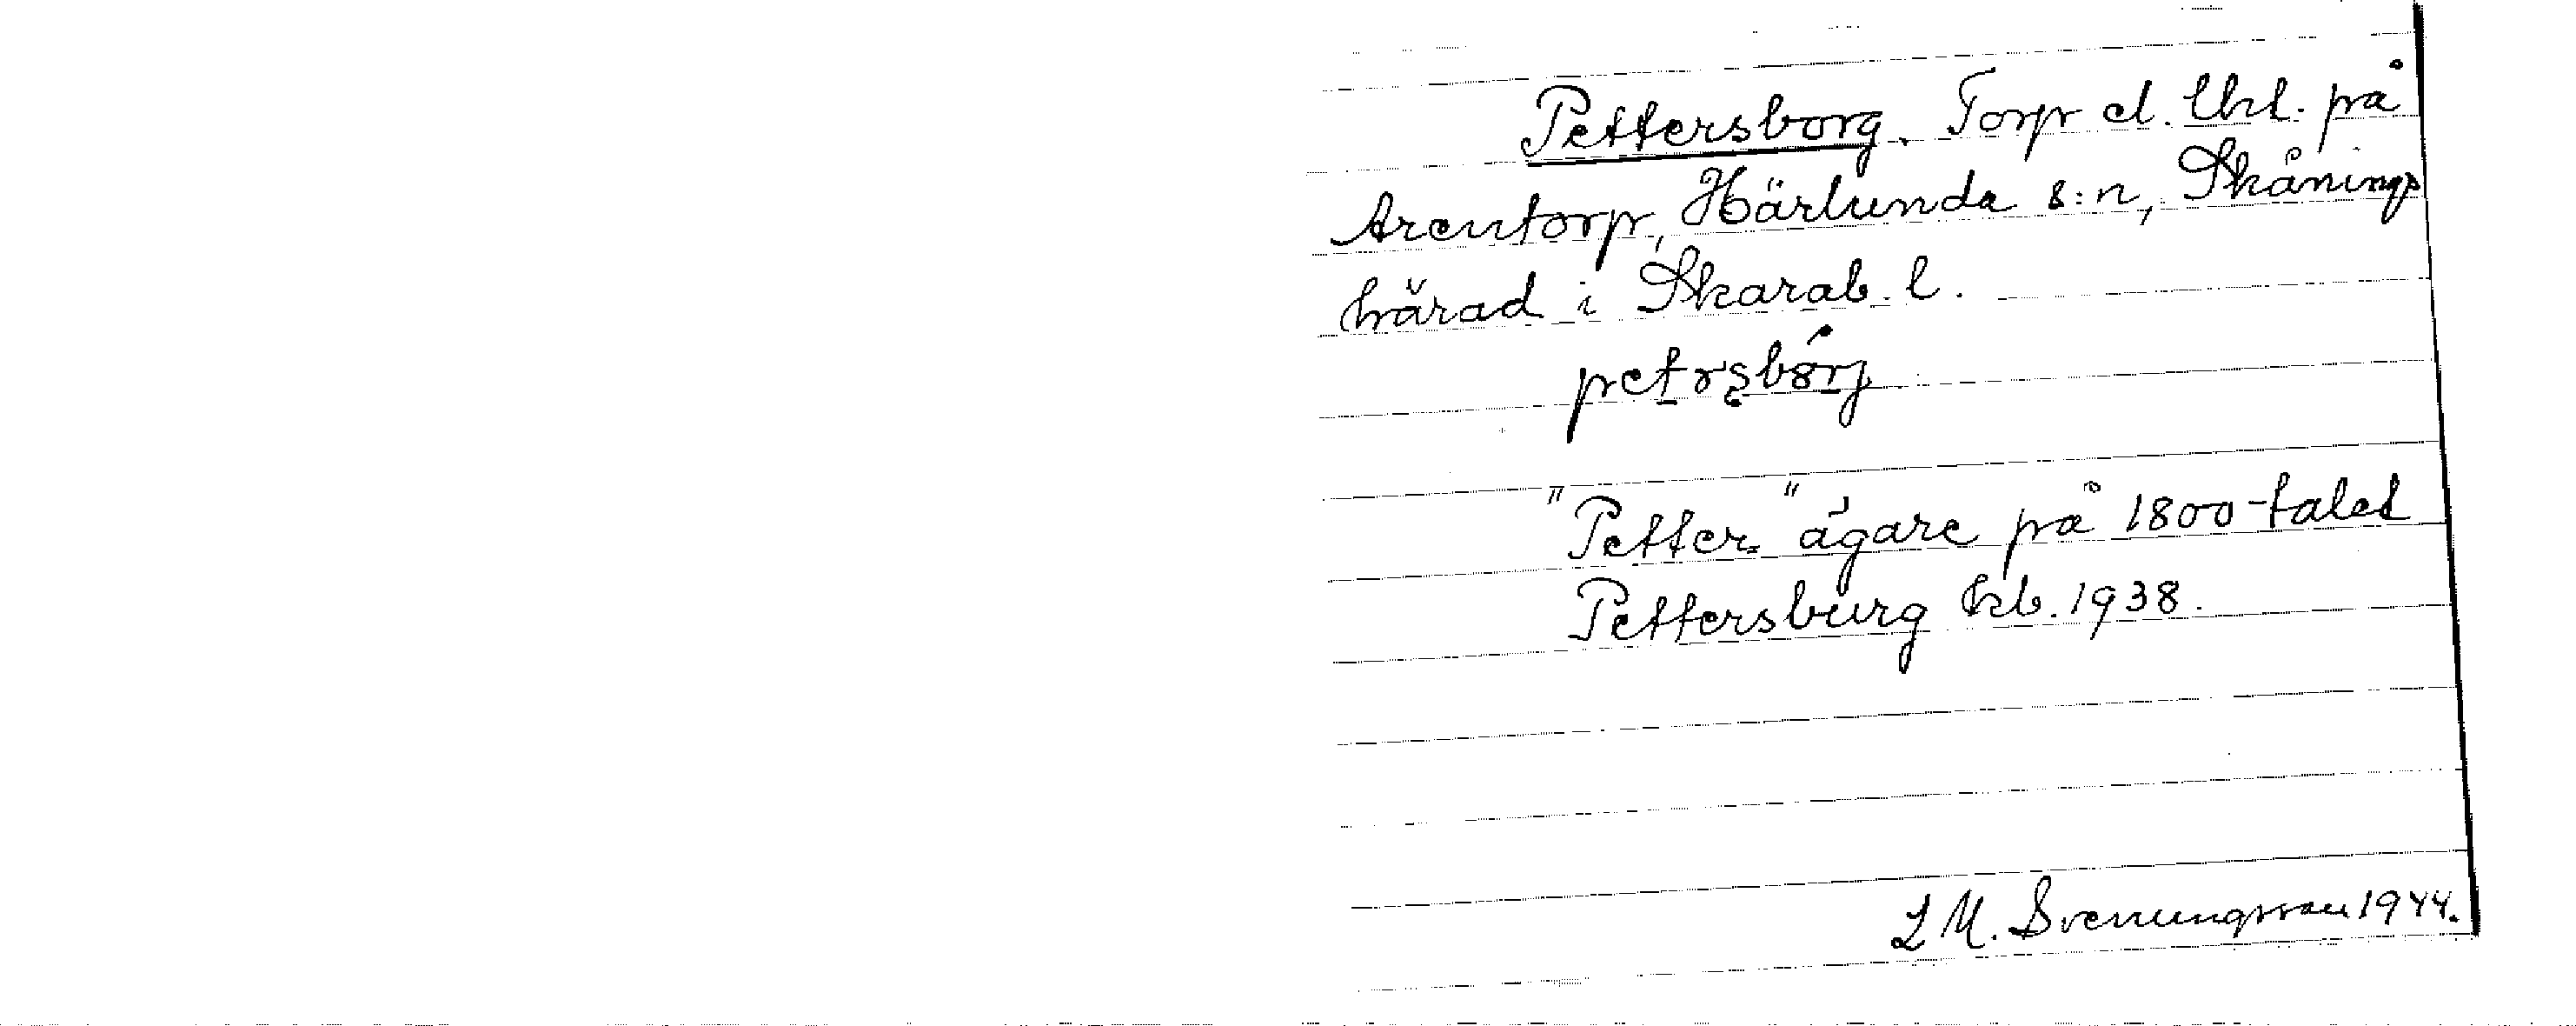 Pettersborg. Torp el. lht. på
Arentorp, Härlunda s:n, Skånings
härad i Skarab. l.
petrsbörj
"Petter" ägare på 1800-talet
Pettersburg kb. 1938.
L M. Svenungsson 1944.